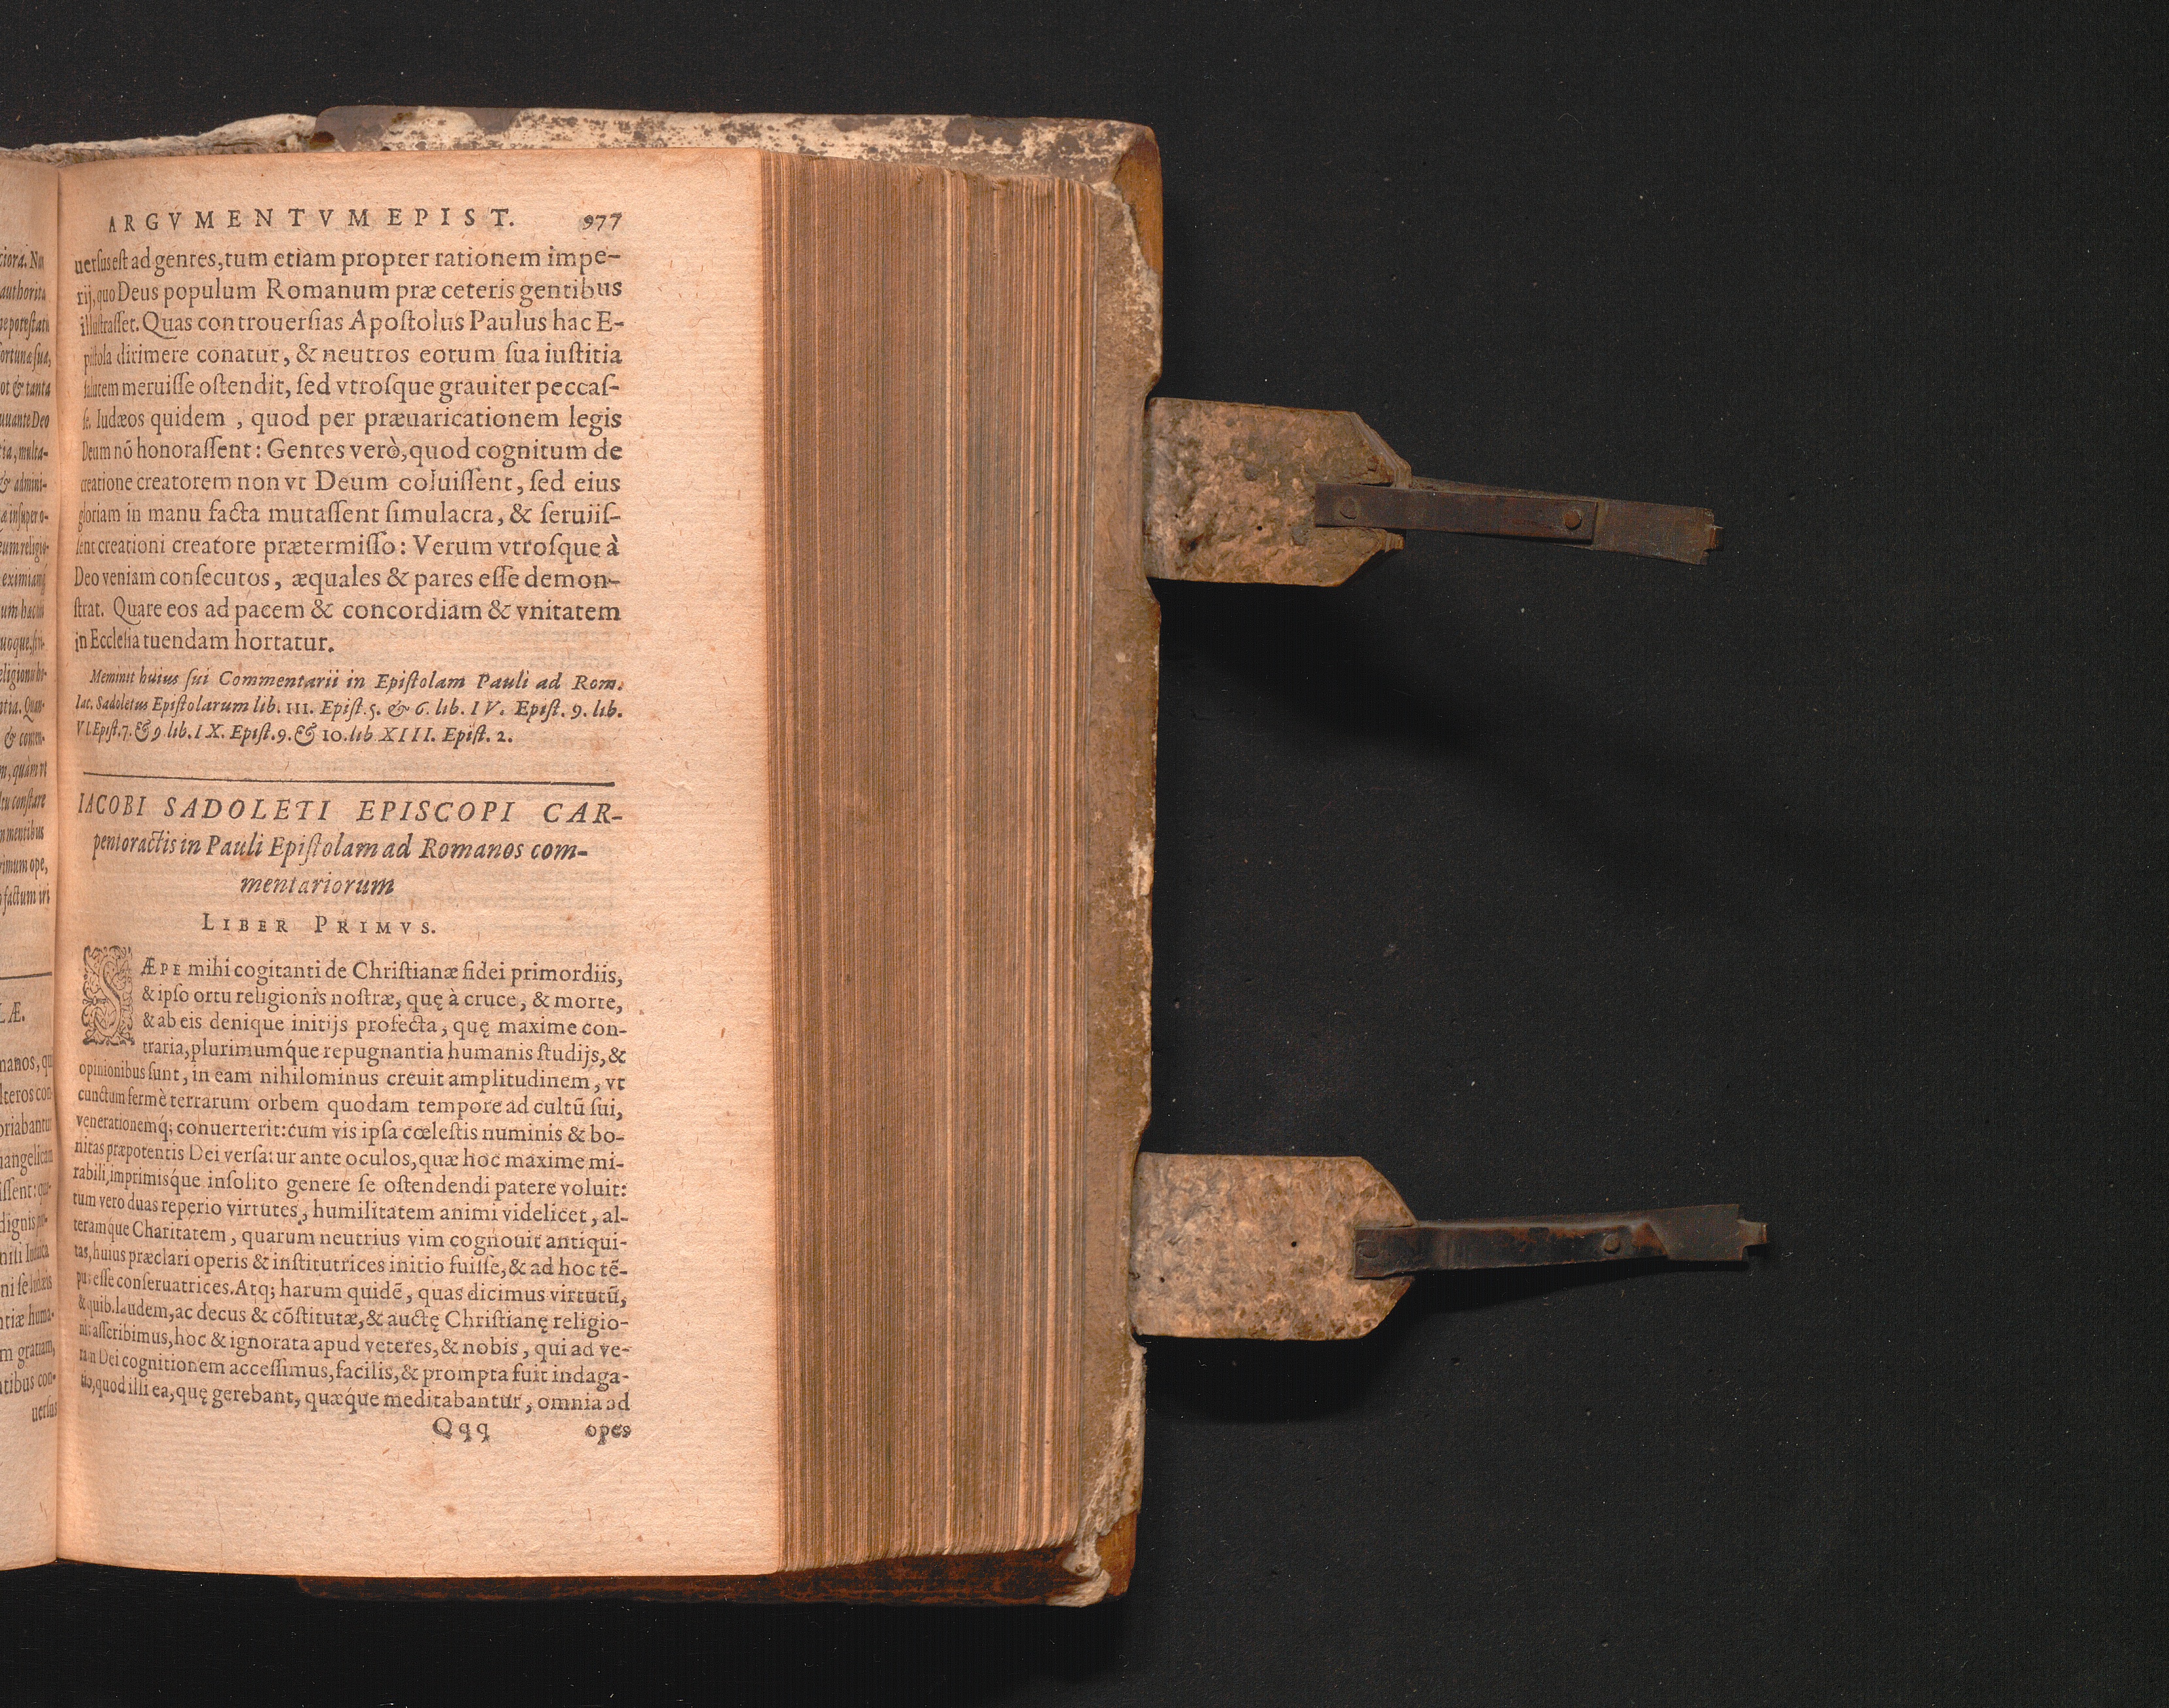 ARGVMENTVM EPIST. 977
uersus est ad gentes, tum etiam propter rationem impe-
rij, quo Deus populum Romanum præ ceteris gentibus
illustrasset. Quas controuersias Apostolus Paulus hac E-
pistola dirimere conatur, & neutros eorum sua iustitia
salutem meruisse ostendit, sed vtrosque grauiter peccas-
se. Iudæos quidem, quod per præuaricationem legis
Deum nō honorassent: Gentes verò, quod cognitum de
creatione creatorem non vt Deum coluissent, sed eius
gloriam in manu facta mutassent simulacra, & seruiis-
sent creationi creatore prætermisso: Verum vtrosque à
Deo veniam consecutos, æquales & pares esse demon-
strat. Quare eos ad pacem & concordiam & vnitatem
in Ecclesia tuendam hortatur.
Meminit huius sui Commentarii in Epistolam Pauli ad Rom.
Iac. Sadoletus Epistolarum lib. III. Epist. 5. & 6. lib. IV. Epist. 9. lib.
VI. Epist. 7. & 9. lib. IX. Epist. 9. & 10. lib XIII. Epist. 2.
IACOBI SADOLETI EPISCOPI CAR-
pentoractis in Pauli Epistolam ad Romanos com-
mentariorum
LIBER PRIMVS.
SÆPE mihi cogitanti de Christianæ fidei primordiis,
& ipso ortu religionis nostræ, quę à cruce, & morte,
& ab eis denique initijs profecta, quę maxime con-
traria, plurimumq́ue repugnantia humanis studijs, &
opinionibus sunt, in eam nihilominus creuit amplitudinem, vt
cunctum fermè terrarum orbem quodam tempore ad cultū sui,
venerationemq; conuerterit: cum vis ipsa cœlestis numinis & bo-
nitas præpotentis Dei versatur ante oculos, quæ hoc maxime mi-
rabili, imprimisq́ue insolito genere se ostendendi patere voluit:
tum vero duas reperio virtutes, humilitatem animi videlicet, al-
teramque Charitatem, quarum neutrius vim cognouit antiqui-
tas, huius præclari operis & institutrices initio fuisse, & ad hoc tē-
pus esse conseruatrices. Atq; harum quidē, quas dicimus virtutū,
& quib. laudem, ac decus & cōstitutæ, & auctę Christianę religio-
nis asscribimus, hoc & ignorata apud veteres, & nobis, qui ad ve-
ram Dei cognitionem accessimus, facilis, & prompta fuit indaga-
tio, quod illi ea, quę gerebant, quæq́ue meditabantur, omnia ad
Qqq opes